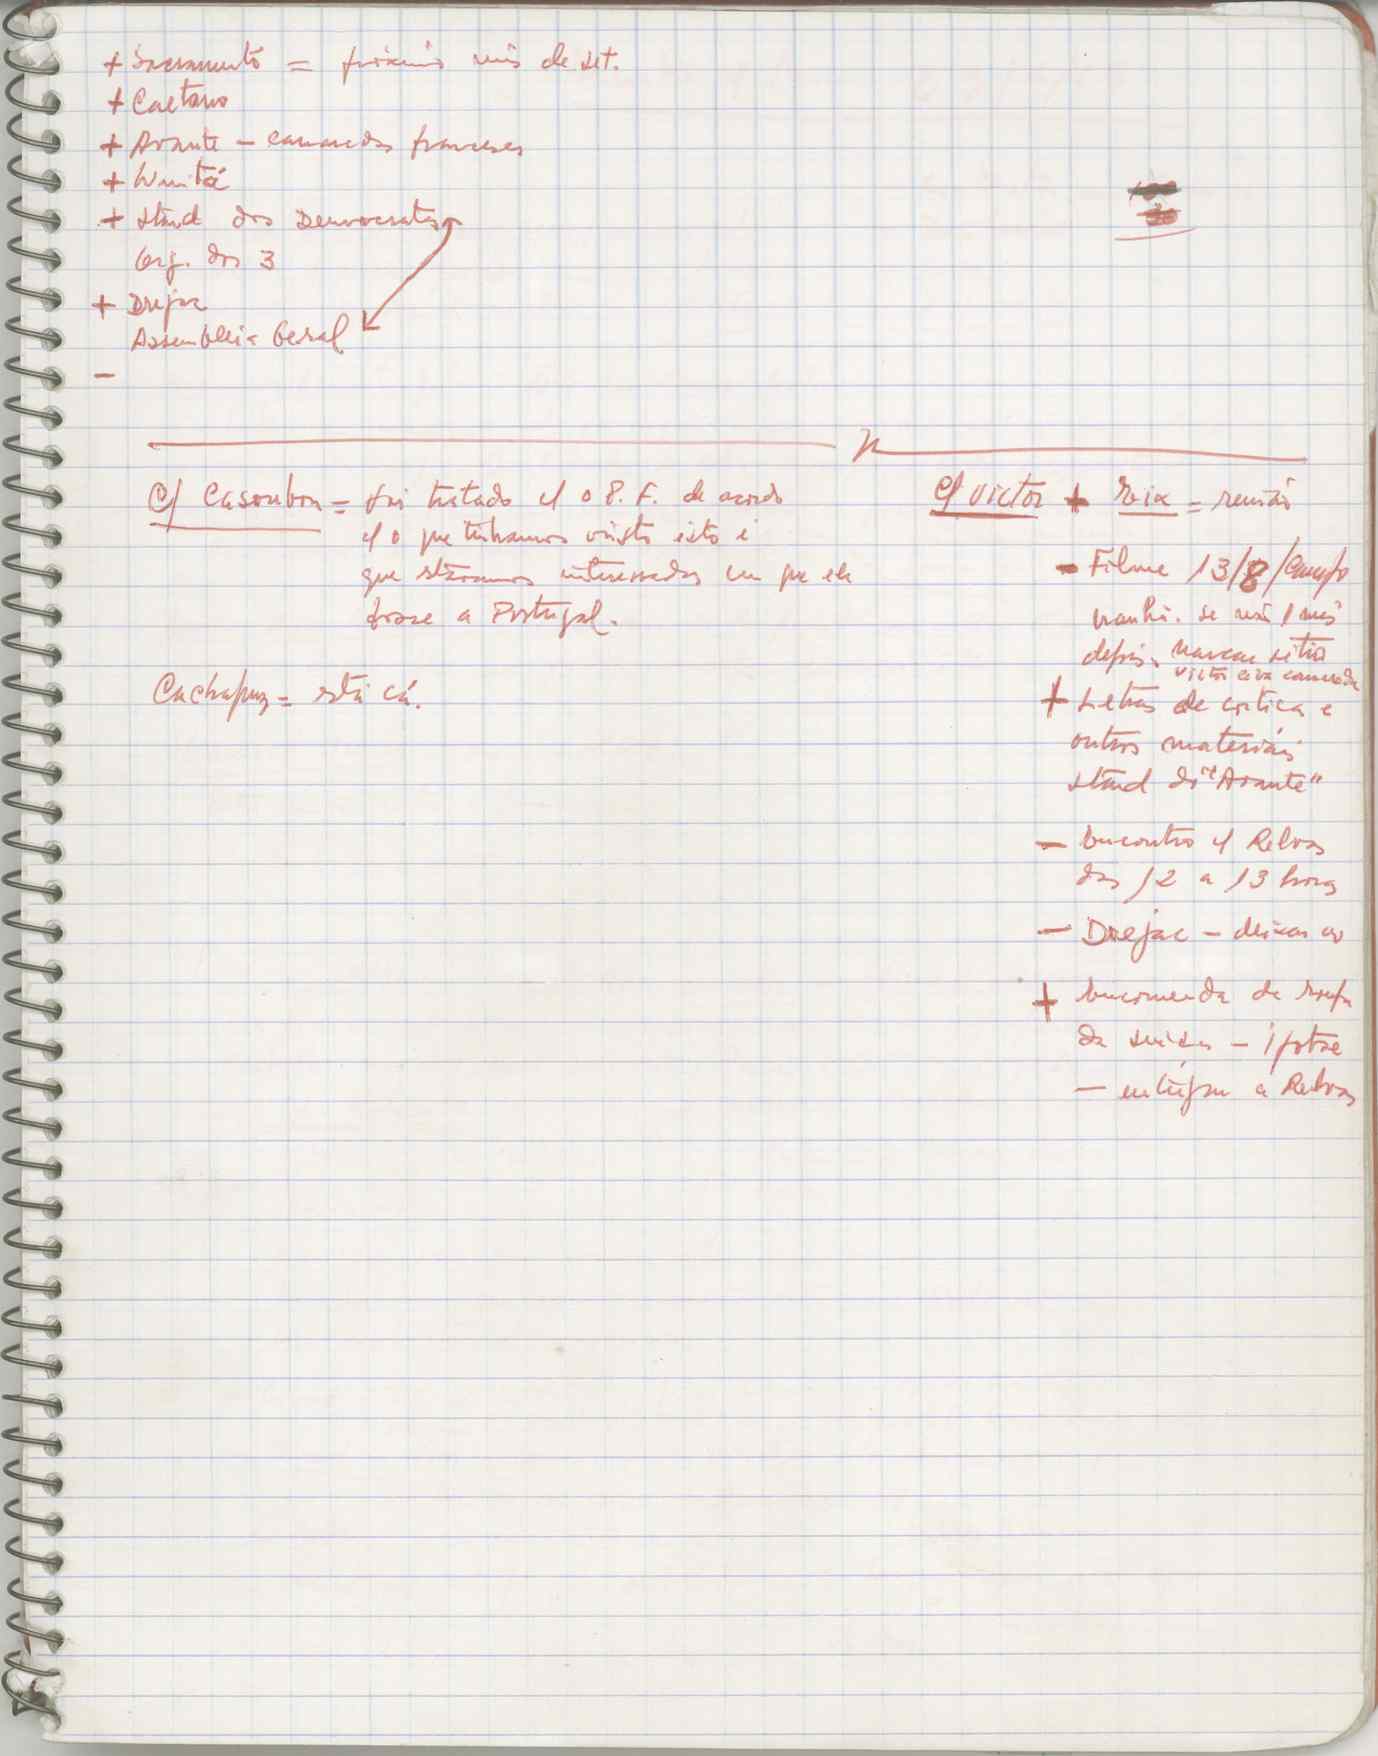 + Sacramento = próximo mês de set.
+ Caetano
+ Avante - camaradas franceses
+ Unitá
+ stand dos Democratas
Org. dos 3
+ Drejac
Assembleia Geral
-
C/ Casoubon = foi tratado c/ o P. F. de acordo
c/ o que tinhamos visto isto é
que estavamos interessados em que ele
fosse a Portugal.
Cachapuz = está cá.
C/ Victor + = reunião
- Filme 13/8/
manhã. se não 1 mês
depois. marcar sitio
Victor camarada
+ Letras de cortiça e
outros materiais
stand do "Avante"
- Encontro c/ Relvas
das 12 a 13 horas
- Drejac - deixar
+ Encomenda de roupa
da - 1
- entregar a Relvas